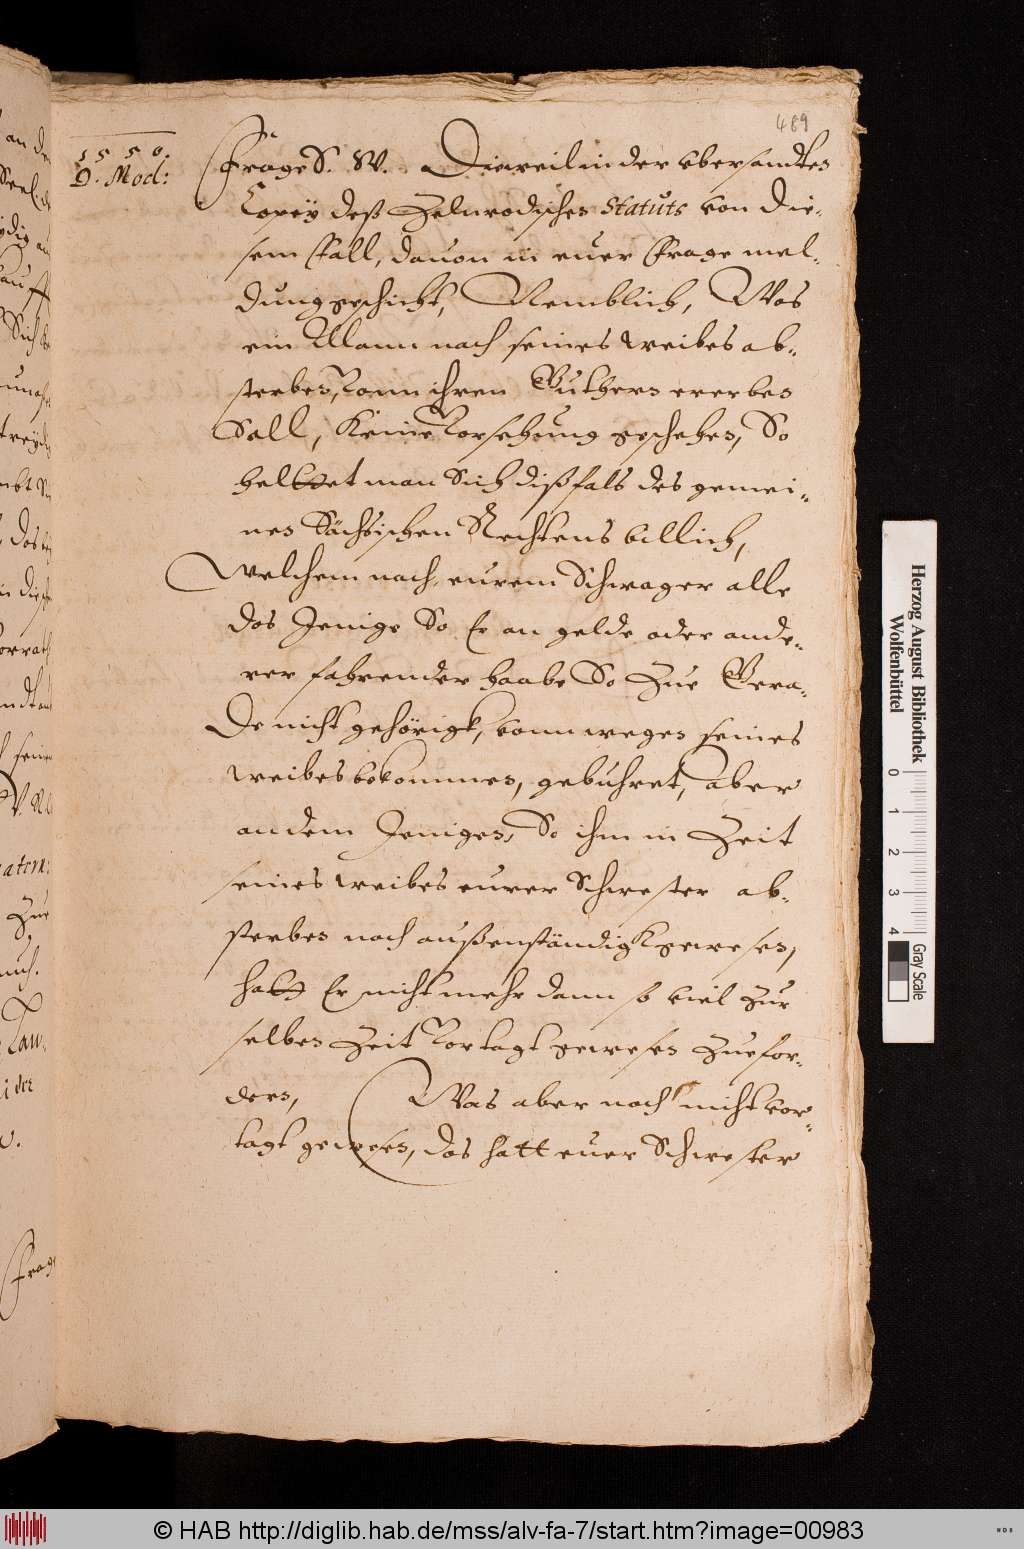 489
1550.
D. Mod:
Frage S. W. Dieweil in der übersandten
Copey deß Zelnrodischen Statuts von die-
sem Fall, davon in euer Frage mel-
dung geschicht, Nemblich, Was
ein Mann nach seines weibes ab-
sterben, vonn ihren Guthern ererben
Soll, Keine vorsehung geschehen, So
heltet man Sich dißfals des gemei-
nen Sächsischen Rechtens billich,
Welchem nach, eurem Schwager alle
das Jenige So Er an gelde oder ande-
rer fahrender haabe So Zue Gera-
de nicht gehörigk, vonn wegen seines
weibes bekommen, gebuhret, aber
an dem Jenigen, So ihm in Zeit
seines weibes eurer Schwester ab-
sterben noch außenständigk gewesen,
hatt Er nicht mehr dann so viel Zur
selben Zeit vortagt gewesen Zuefor-
dern, Was aber noch nicht vor-
tagt gewesen, das hatt euer Schwester
Herzog August Bibliothek
Wolfenbüttel
0 1 2 3 4
Gray Scale
© HAB http://diglib.hab.de/mss/alv-fa-7/start.htm?image=00983